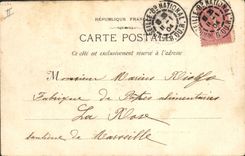 RÉPUBLIQUE FRANÇ
CARTE POSTALE
Ce côté est exclusivement réservé à l'adresse
Monsieur Marius
Fabrique de Pâtes alimentaires
La Rose
banlieue de Marseille